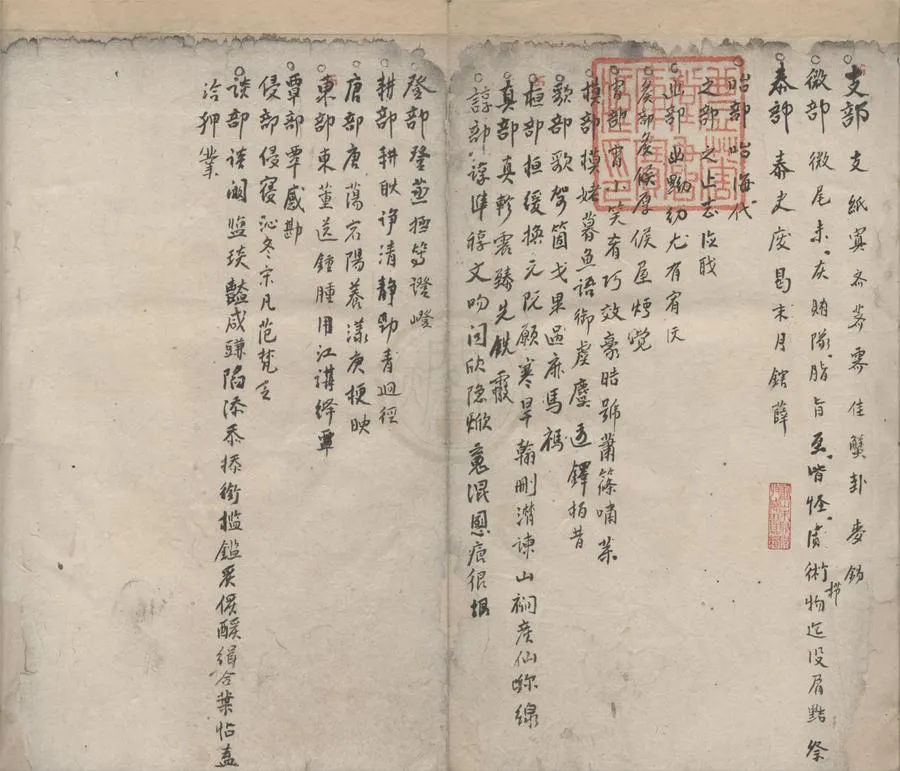 支部 支紙寘齊薺霽佳蟹卦麥錫
微部 微尾未灰賄隊脂旨至皆怪質術櫛物迄沒屑黠祭
泰部 泰夬廢曷末月鎋薛
咍部 咍海代
之部 之止志 職
幽部 幽黝幼尤有宥沃
矦部 矦候厚候屋燭覺
宵部 宵小笑肴巧效豪晧號蕭篠嘯藥
模部 模姥暮魚語御虞麌遇鐸陌昔
歌部 歌哿箇戈果過麻馬禡
桓部 桓緩換元阮願寒旱翰刪潸諫山襉產仙線
真部 真軫震臻先銑霰
諄部 諄準稕文吻問欣隱焮䰟混慁痕很恨
登部 登蒸拯等證嶝
耕部 耕耿諍清靜勁青迥徑
唐部 唐蕩宕陽養漾庚梗映
東部 東董送鍾腫用江講絳
覃部 覃感勘
侵部 侵寑沁冬宋凡范梵
談部 談闞琰豔咸豏陷添忝㮇銜檻鑑緝合葉怗盍
洽狎業